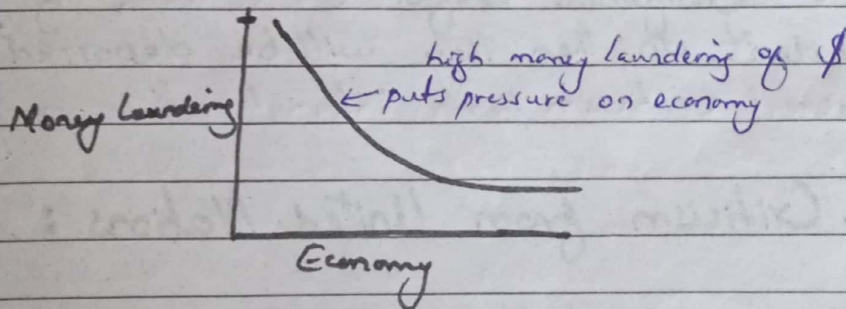 high money laundering of $
Money laundering
← puts pressure on economy
Economy